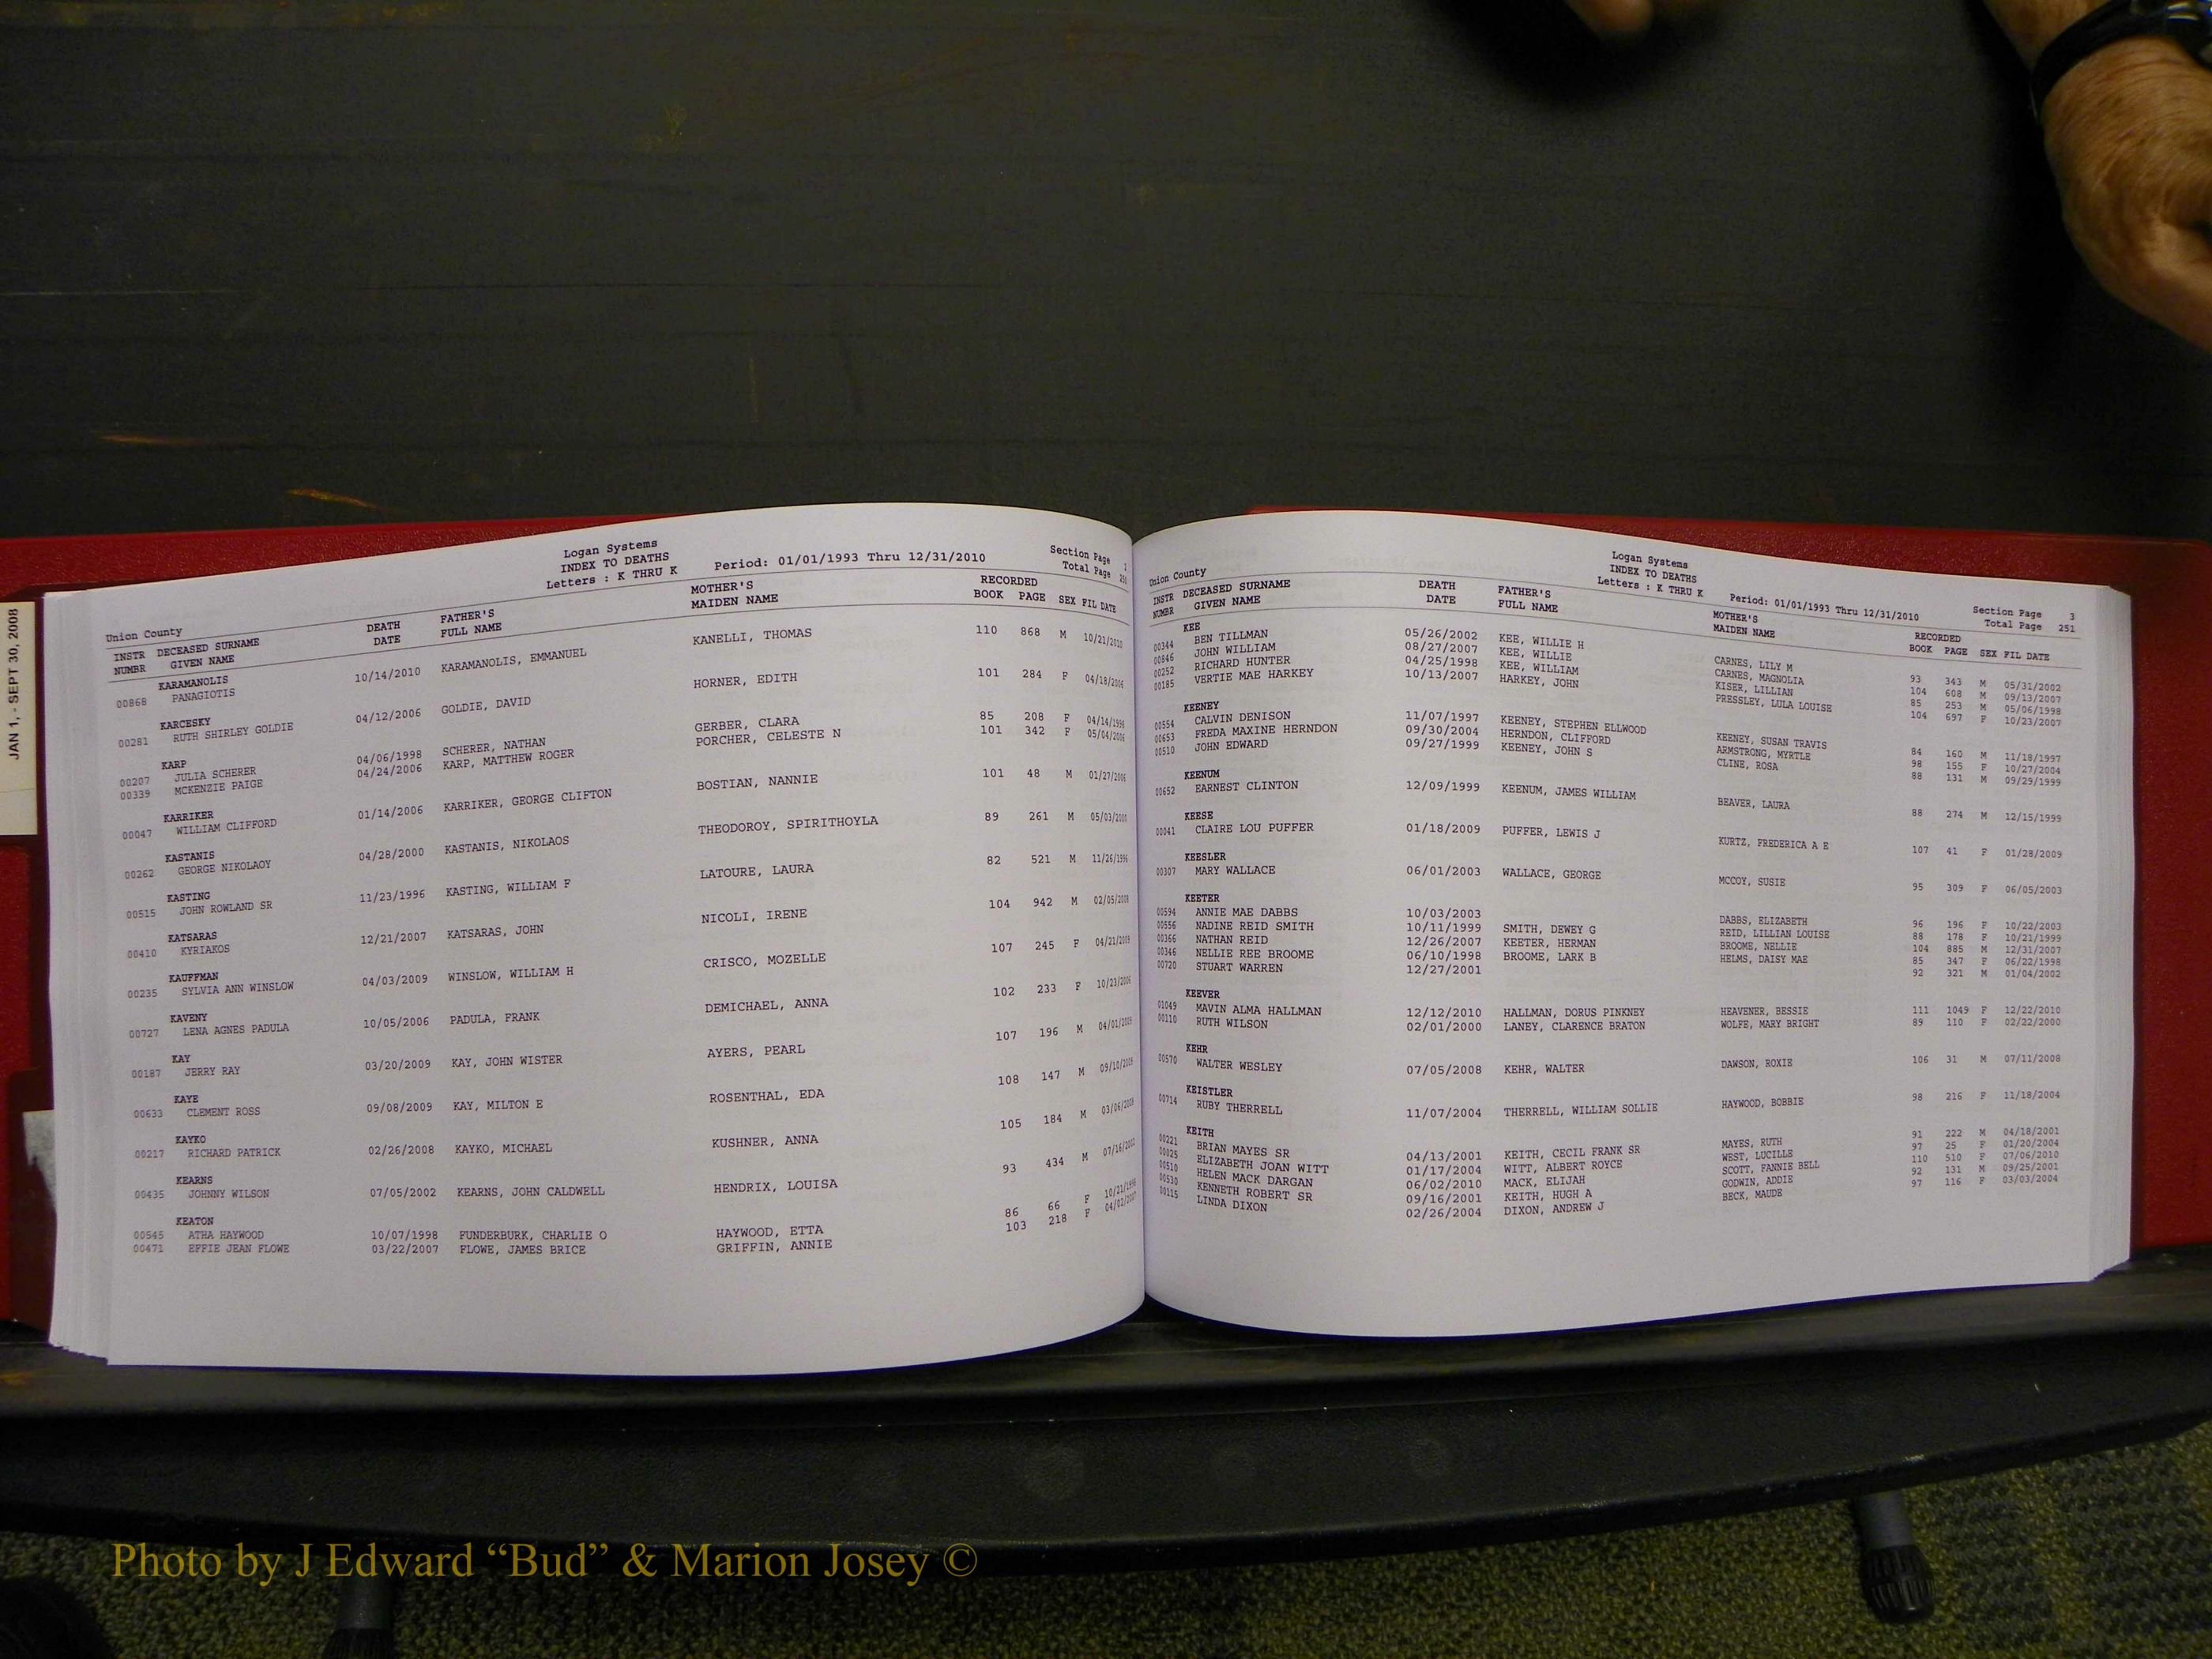 JAN 1, - SEPT 30, 2008
Logan Systems
INDEX TO DEATHS
Letters : K THRU K
Period: 01/01/1993 Thru 12/31/2010
Section Page
Total Page
Union County
INSTR DECEASED SURNAME DEATH FATHER'S MOTHER'S RECORDED
NUMBR GIVEN NAME DATE FULL NAME MAIDEN NAME BOOK PAGE SEX FIL DATE
KARAMANOLIS
00868 PANAGIOTIS 10/14/2010 KARAMANOLIS, EMMANUEL KANELLI, THOMAS 110 868 M 10/21/2010
KARCESKY
00281 RUTH SHIRLEY GOLDIE 04/12/2006 GOLDIE, DAVID HORNER, EDITH 101 284 F 04/18/2006
KARP
00207 JULIA SCHERER 04/06/1998 SCHERER, NATHAN GERBER, CLARA 85 208 F 04/14/1998
00339 MCKENZIE PAIGE 04/24/2006 KARP, MATTHEW ROGER PORCHER, CELESTE N 101 342 F 05/04/2006
KARRIKER
00047 WILLIAM CLIFFORD 01/14/2006 KARRIKER, GEORGE CLIFTON BOSTIAN, NANNIE 101 48 M 01/27/2006
KASTANIS
00262 GEORGE NIKOLAOY 04/28/2000 KASTANIS, NIKOLAOS THEODOROY, SPIRITHOYLA 89 261 M 05/03/2000
KASTING
00515 JOHN ROWLAND SR 11/23/1996 KASTING, WILLIAM F LATOURE, LAURA 82 521 M 11/26/1996
KATSARAS
00410 KYRIAKOS 12/21/2007 KATSARAS, JOHN NICOLI, IRENE 104 942 M 02/05/2008
KAUFFMAN
00235 SYLVIA ANN WINSLOW 04/03/2009 WINSLOW, WILLIAM H CRISCO, MOZELLE 107 245 F 04/21/2009
KAVENY
00727 LENA AGNES PADULA 10/05/2006 PADULA, FRANK DEMICHAEL, ANNA 102 233 F 10/23/2006
KAY
00187 JERRY RAY 03/20/2009 KAY, JOHN WISTER AYERS, PEARL 107 196 M 04/01/2009
KAYE
00633 CLEMENT ROSS 09/08/2009 KAY, MILTON E ROSENTHAL, EDA 108 147 M 09/10/2009
KAYKO
00217 RICHARD PATRICK 02/26/2008 KAYKO, MICHAEL KUSHNER, ANNA 105 184 M 03/06/2008
KEARNS
00435 JOHNNY WILSON 07/05/2002 KEARNS, JOHN CALDWELL HENDRIX, LOUISA 93 434 M 07/16/2002
KEATON
00545 ATHA HAYWOOD 10/07/1998 FUNDERBURK, CHARLIE O HAYWOOD, ETTA 86 66 F 10/21/1998
00471 EFFIE JEAN FLOWE 03/22/2007 FLOWE, JAMES BRICE GRIFFIN, ANNIE 103 218 F 04/02/2007
Logan Systems
INDEX TO DEATHS
Letters : K THRU K
Period: 01/01/1993 Thru 12/31/2010
Section Page 3
Total Page 251
Union County
INSTR DECEASED SURNAME DEATH FATHER'S MOTHER'S RECORDED
NUMBR GIVEN NAME DATE FULL NAME MAIDEN NAME BOOK PAGE SEX FIL DATE
KEE
00344 BEN TILLMAN 05/26/2002 KEE, WILLIE H CARNES, LILY M 93 343 M 05/31/2002
00846 JOHN WILLIAM 08/27/2007 KEE, WILLIE CARNES, MAGNOLIA 104 608 M 09/13/2007
00252 RICHARD HUNTER 04/25/1998 KEE, WILLIAM KISER, LILLIAN 85 253 M 05/06/1998
00185 VERTIE MAE HARKEY 10/13/2007 HARKEY, JOHN PRESSLEY, LULA LOUISE 104 697 F 10/23/2007
KEENEY
00554 CALVIN DENISON 11/07/1997 KEENEY, STEPHEN ELLWOOD KEENEY, SUSAN TRAVIS 84 160 M 11/18/1997
00653 FREDA MAXINE HERNDON 09/30/2004 HERNDON, CLIFFORD ARMSTRONG, MYRTLE 98 155 F 10/27/2004
00510 JOHN EDWARD 09/27/1999 KEENEY, JOHN S CLINE, ROSA 88 131 M 09/29/1999
KEENUM
00652 EARNEST CLINTON 12/09/1999 KEENUM, JAMES WILLIAM BEAVER, LAURA 88 274 M 12/15/1999
KEESE
00041 CLAIRE LOU PUFFER 01/18/2009 PUFFER, LEWIS J KURTZ, FREDERICA A E 107 41 F 01/28/2009
KEESLER
00307 MARY WALLACE 06/01/2003 WALLACE, GEORGE MCCOY, SUSIE 95 309 F 06/05/2003
KEETER
00594 ANNIE MAE DABBS 10/03/2003 DABBS, ELIZABETH 96 196 F 10/22/2003
00556 NADINE REID SMITH 10/11/1999 SMITH, DEWEY G REID, LILLIAN LOUISE 88 178 F 10/21/1999
00366 NATHAN REID 12/26/2007 KEETER, HERMAN BROOME, NELLIE 104 885 M 12/31/2007
00346 NELLIE REE BROOME 06/10/1998 BROOME, LARK B HELMS, DAISY MAE 85 347 F 06/22/1998
00720 STUART WARREN 12/27/2001 92 321 M 01/04/2002
KEEVER
01049 MAVIN ALMA HALLMAN 12/12/2010 HALLMAN, DORUS PINKNEY HEAVENER, BESSIE 111 1049 F 12/22/2010
00110 RUTH WILSON 02/01/2000 LANEY, CLARENCE BRATON WOLFE, MARY BRIGHT 89 110 F 02/22/2000
KEHR
00570 WALTER WESLEY 07/05/2008 KEHR, WALTER DAWSON, ROXIE 106 31 M 07/11/2008
KEISTLER
00714 RUBY THERRELL 11/07/2004 THERRELL, WILLIAM SOLLIE HAYWOOD, BOBBIE 98 216 F 11/18/2004
KEITH
00221 BRIAN MAYES SR 04/13/2001 KEITH, CECIL FRANK SR MAYES, RUTH 91 222 M 04/18/2001
00025 ELIZABETH JOAN WITT 01/17/2004 WITT, ALBERT ROYCE WEST, LUCILLE 97 25 F 01/20/2004
00510 HELEN MACK DARGAN 06/02/2010 MACK, ELIJAH SCOTT, FANNIE BELL 110 510 F 07/06/2010
00530 KENNETH ROBERT SR 09/16/2001 KEITH, HUGH A GODWIN, ADDIE 92 131 M 09/25/2001
00115 LINDA DIXON 02/26/2004 DIXON, ANDREW J BECK, MAUDE 97 116 F 03/03/2004
Photo by J Edward “Bud” & Marion Josey ©